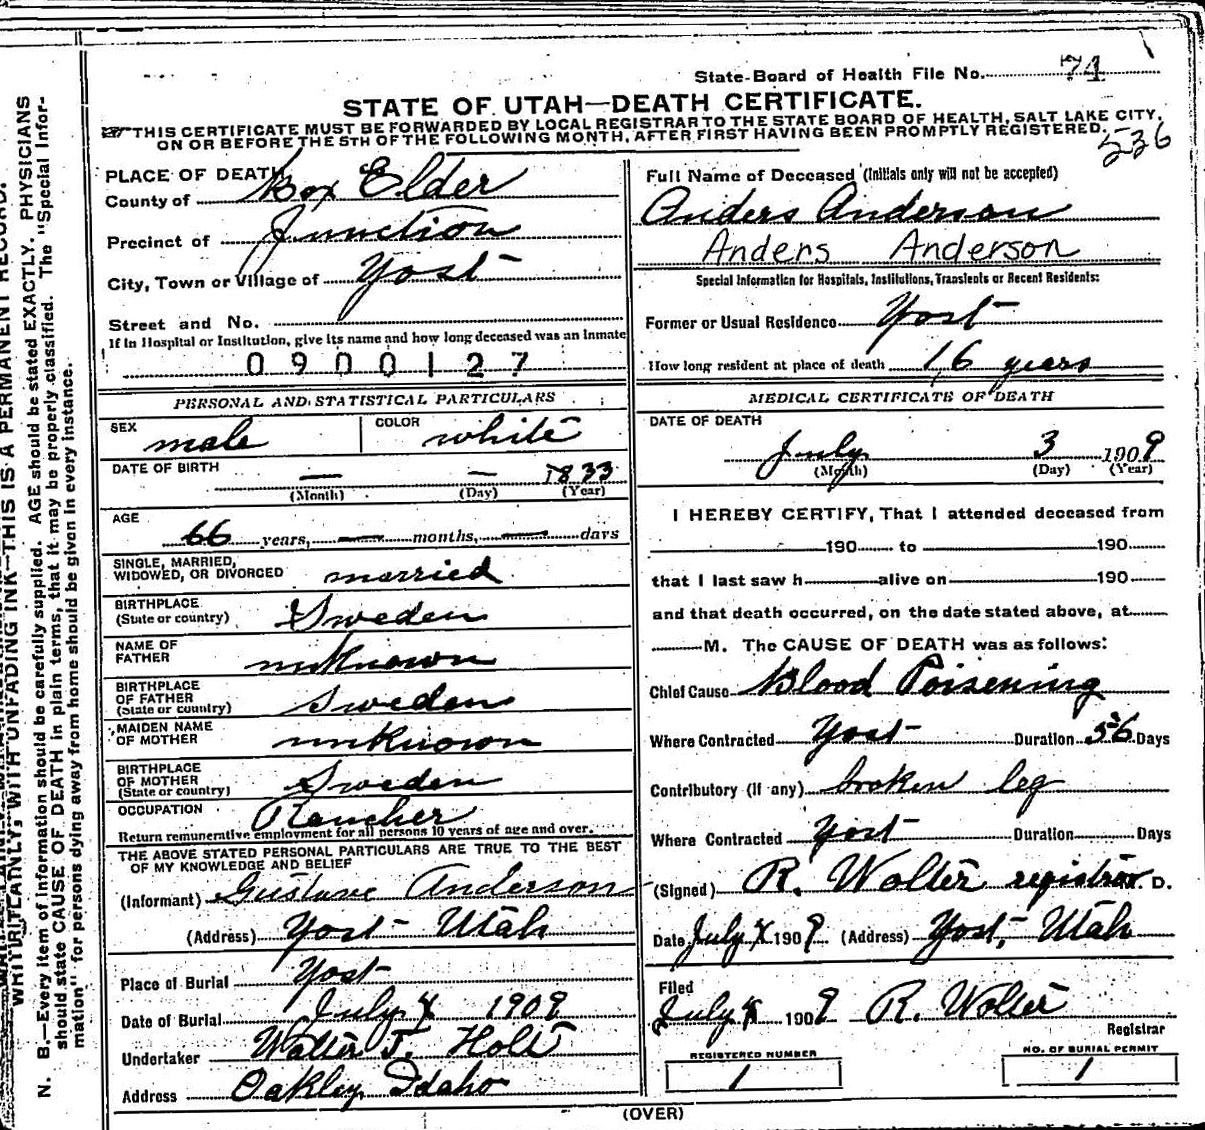 State Board of Health File No. 74
STATE OF UTAH—DEATH CERTIFICATE.
THIS CERTIFICATE MUST BE FORWARDED BY LOCAL REGISTRAR TO THE STATE BOARD OF HEALTH, SALT LAKE CITY,
ON OR BEFORE THE 5TH OF THE FOLLOWING MONTH, AFTER FIRST HAVING BEEN PROMPTLY REGISTERED.
536
PLACE OF DEATH
County of Box Elder
Precinct of Junction
City, Town or Village of Yost
Street and No.
If in Hospital or Institution, give its name and how long deceased was an Inmate
0900127
PERSONAL AND STATISTICAL PARTICULARS
SEX male COLOR white
DATE OF BIRTH — — 1833
(Month) (Day) (Year)
AGE
66 years, — months, — days
SINGLE, MARRIED,
WIDOWED, OR DIVORCED married
BIRTHPLACE
(State or country) Sweden
NAME OF
FATHER unknown
BIRTHPLACE
OF FATHER
(State or country) Sweden
MAIDEN NAME
OF MOTHER unknown
BIRTHPLACE
OF MOTHER
(State or country) Sweden
OCCUPATION Rancher
Return remunerative employment for all persons 10 years of age and over.
THE ABOVE STATED PERSONAL PARTICULARS ARE TRUE TO THE BEST
OF MY KNOWLEDGE AND BELIEF
(Informant) Gustave Anderson
(Address) Yost Utah
Place of Burial Yost
Date of Burial July 4 1909
Undertaker Walter J. Holt
Address Oakley Idaho
Full Name of Deceased (Initials only will not be accepted)
Anders Anderson
Anders Anderson
Special Information for Hospitals, Institutions, Transients or Recent Residents:
Former or Usual Residence Yost
How long resident at place of death 16 years
MEDICAL CERTIFICATE OF DEATH
DATE OF DEATH
July 3 1909
(Month) (Day) (Year)
I HEREBY CERTIFY, That I attended deceased from
190 to 190
that I last saw h alive on 190
and that death occurred, on the date stated above, at
M. The CAUSE OF DEATH was as follows:
Chief Cause Blood Poisening
Where Contracted Yost Duration 56 Days
Contributory (if any) broken leg
Where Contracted Yost Duration Days
(Signed) R. Wolter registrar. D.
Date July 4 1909 (Address) Yost, Utah
Filed
July 1909 R. Wolter
Registrar
REGISTERED NUMBER
1
NO. OF BURIAL PERMIT
1
(OVER)
WRITE PLAINLY, WITH UNFADING INK—THIS IS A PERMANENT RECORD.
N. B.—Every item of information should be carefully supplied. AGE should be stated EXACTLY. PHYSICIANS
should state CAUSE OF DEATH in plain terms, that it may be properly classified. The "Special Infor-
mation" for persons dying away from home should be given in every instance.